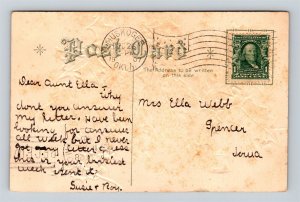 MUSKOGEE
OKLA.
Post Card
The address to be written
on this side
Dear Aunt Ella, Why
dont you answer
my letter. Have been
looking for answer
all week but I never
got any letter guess
this is your busiest
week isent it.
Susie & Roy.
Mrs Ella Webb
Spencer
Iowa